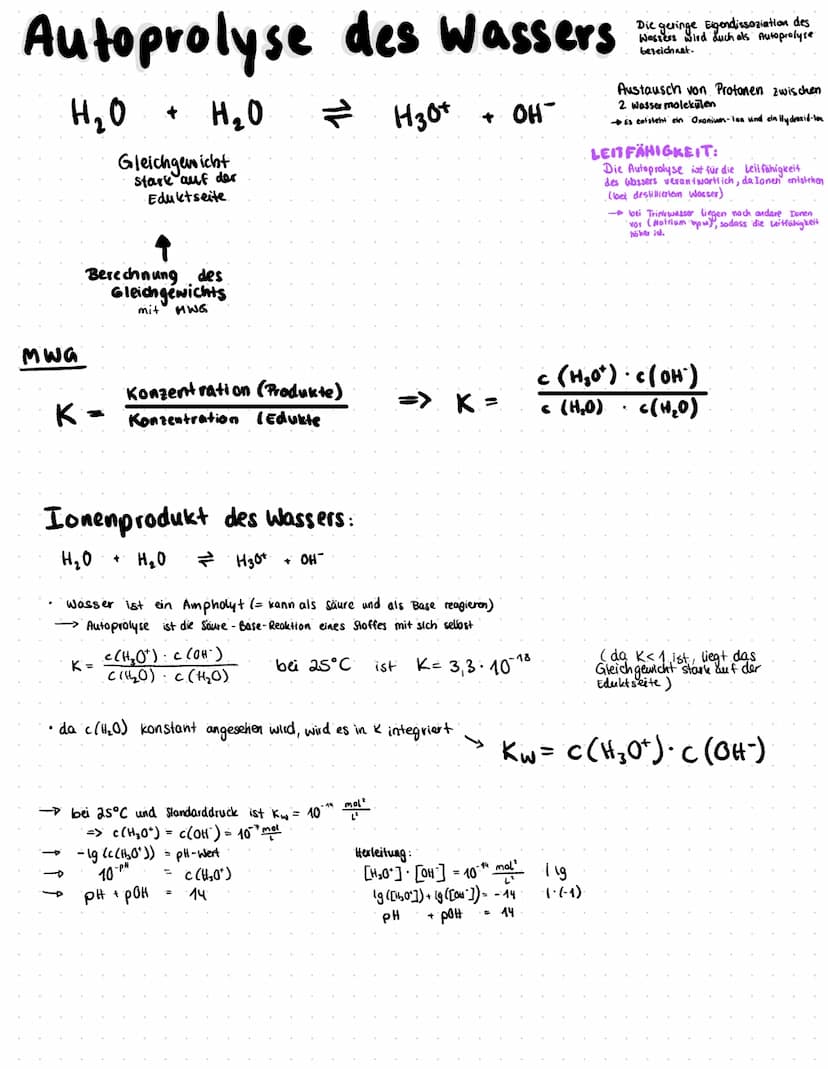 Autoprolyse des Wassers
Die geringe Eigendissoziation des
Wassers wird auch als Autoprolyse
bezeichnet.
H₂O + H₂O ⇌ H₃O⁺ + OH⁻
Austausch von Protonen zwischen
2 Wassermolekülen
→ Es entsteht ein Oxonium-Ion und ein Hydroxid-Ion
Gleichgewicht
stark auf der
Eduktseite
LEITFÄHIGKEIT:
Die Autoprolyse ist für die Leitfähigkeit
des Wassers verantwortlich, da Ionen entstehen
(bei destilliertem Wasser)
→ bei Trinkwasser liegen noch andere Ionen
vor (Natrium bpw), sodass die Leitfähigkeit
höher ist.
↑
Berechnung des
Gleichgewichts
mit MWG
MWG
K = Konzentration (Produkte) / Konzentration (Edukte => K = c (H₃O⁺) · c(OH⁻) / c (H₂O) · c(H₂O)
Ionenprodukt des Wassers:
H₂O + H₂O ⇌ H₃O⁺ + OH⁻
· Wasser ist ein Ampholyt (= kann als Säure und als Base reagieren)
→ Autoprolyse ist die Säure-Base-Reaktion eines Stoffes mit sich selbst
K = c(H₃O⁺) · c(OH⁻) / c(H₂O) · c(H₂O) bei 25°C ist K = 3,3 · 10⁻¹⁸
(da K<1 ist, liegt das
Gleichgewicht stark auf der
Eduktseite)
· da c(H₂O) konstant angesehen wird, wird es in K integriert
→ Kw = c(H₃O⁺) · c(OH⁻)
→ bei 25°C und Standarddruck ist Kw = 10⁻¹⁴ mol²/L²
=> c(H₃O⁺) = c(OH⁻) = 10⁻⁷ mol/L
→ -lg (c(H₃O⁺)) = pH-Wert
→ 10⁻ᵖᴴ = c(H₃O⁺)
→ pH + pOH = 14
Herleitung:
[H₃O⁺] · [OH⁻] = 10⁻¹⁴ mol²/L² | lg
lg([H₃O⁺]) + lg([OH⁻]) = -14 | · (-1)
pH + pOH = 14